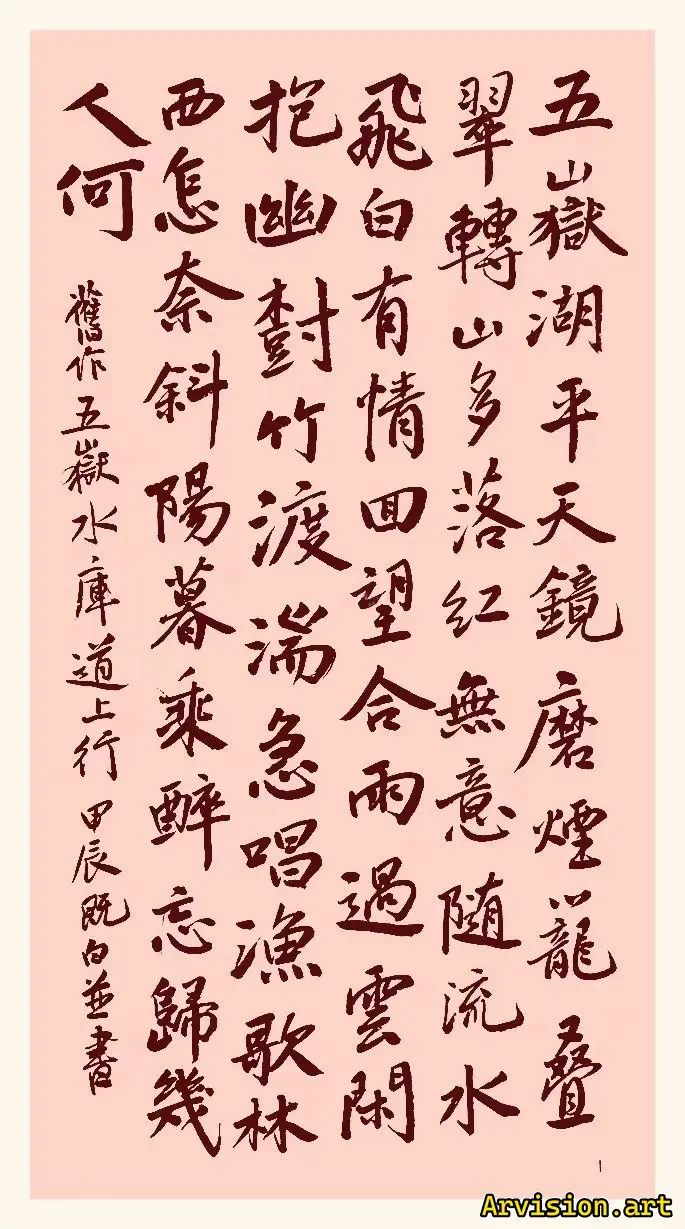 五嶽湖平天鏡磨煙籠叠
翠轉山多落紅無意隨流水
飛白有情回望合雨過雲閑
抱幽對竹渡湍急唱漁歌林
西怎奈斜陽暮乘醉忘歸幾
人何
舊作五嶽水庫道上行 甲辰既白並書
Arvision.art